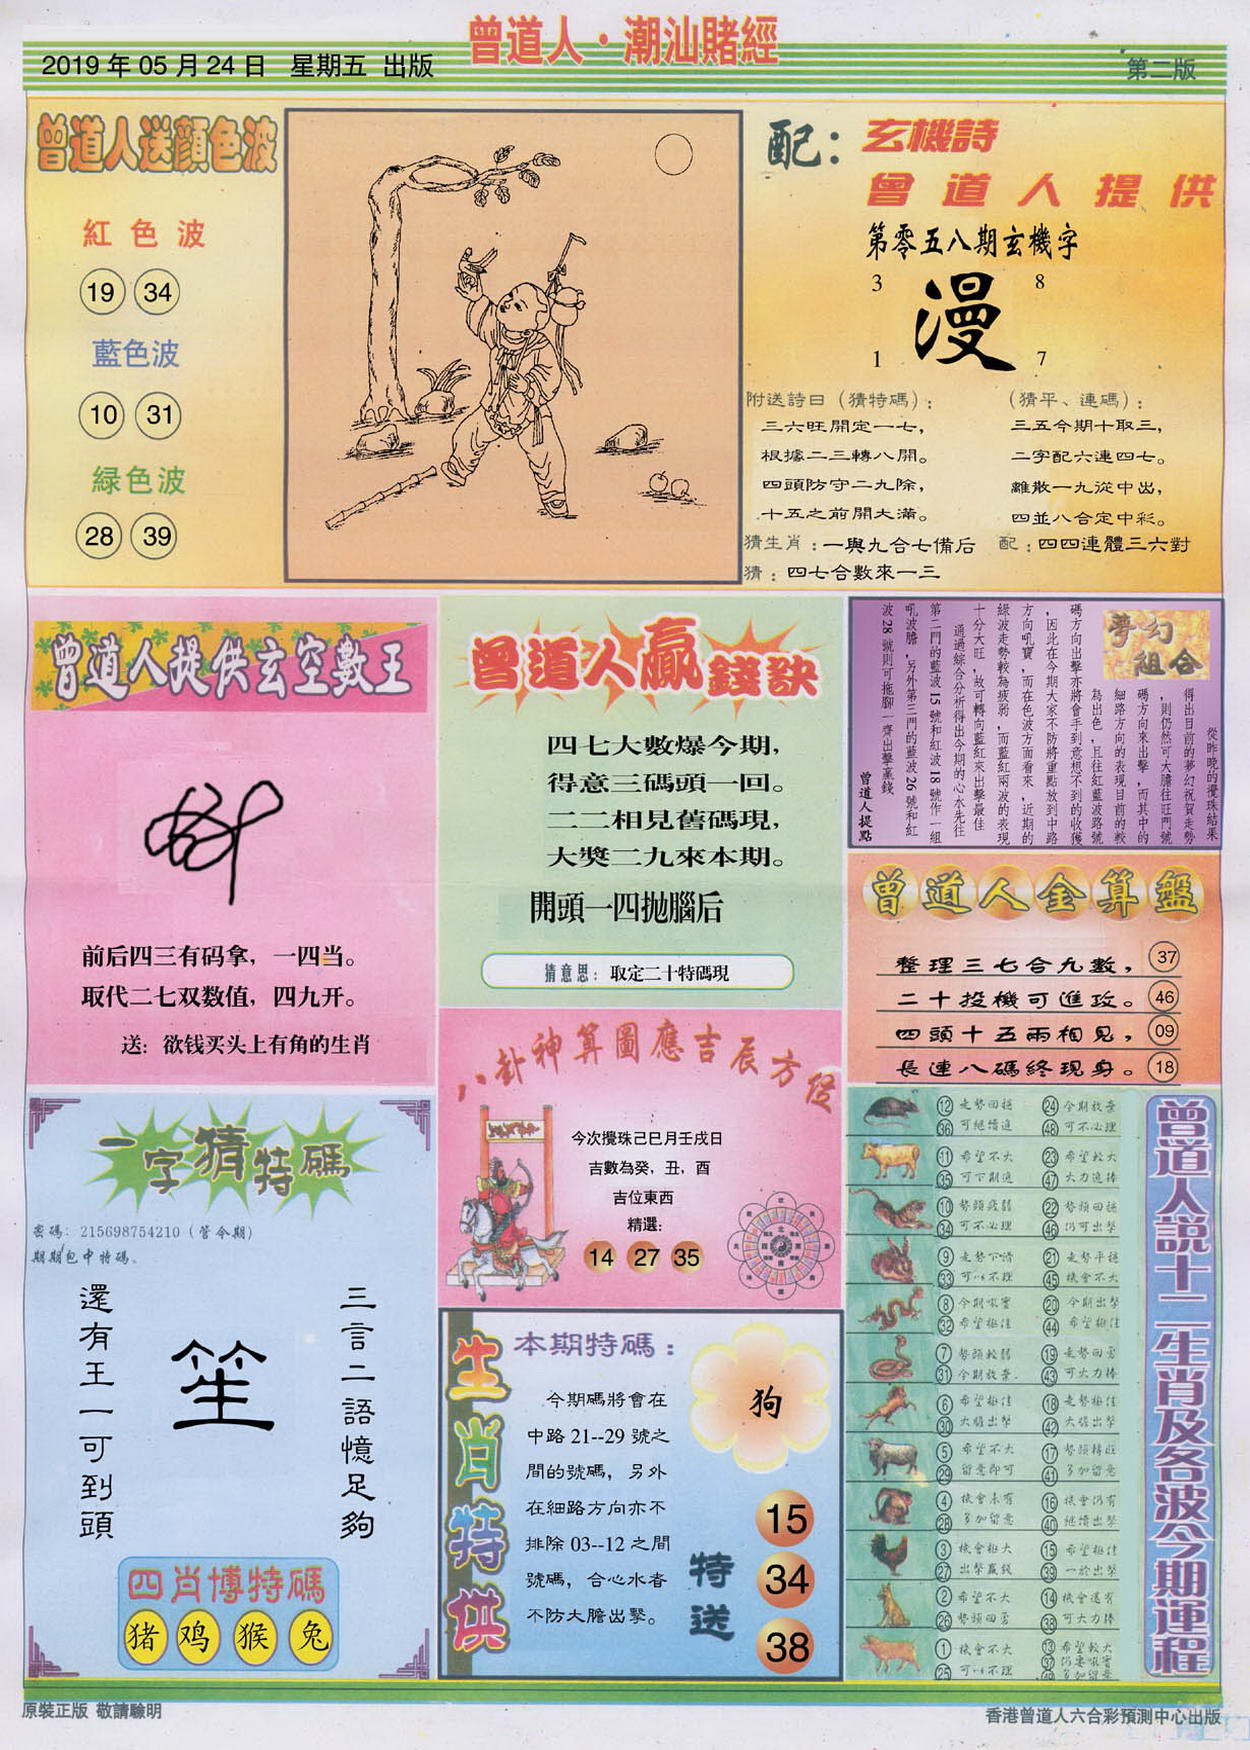 曾道人·潮汕賭經
2019 年 05 月 24 日 星期五 出版
第二版
曾道人送顔色波
紅色波
19 34
藍色波
10 31
緑色波
28 39
配：玄機詩
曾道人提供
第零五八期玄機字
3 8
漫
1 7
附送詩曰（猜特碼）：
三六旺開定一七，
根據二三轉八開。
四頭防守二九除，
十五之前開大滿。
猜生肖：一與九合七備后
猜：四七合數來一三
（猜平、連碼）：
三五今期十取三，
二字配六連四七。
離散一九從中出，
四並八合定中彩。
配：四四連體三六對
曾道人提供玄空數王
前后四三有码拿，一四当。
取代二七双数值，四九开。
送：欲钱买头上有角的生肖
曾道人贏錢訣
四七大數爆今期，
得意三碼頭一回。
二二相見舊碼現，
大獎二九來本期。
開頭一四拋腦后
猜意思：取定二十特碼現
夢幻組合
從昨晚的攪珠結果
得出目前的夢幻祝賀走勢
，則仍然可大膽往旺門號
碼方向來出擊，而其中的
細路方向的表現目前的較
為出色，且往紅藍波路號
碼方向出擊亦將會手到意想不到的收獲
，因此在今期大家不防將重點放到中路
方向吼寶，而在色波方面看來，近期的
綠波走勢較為疲弱，而藍紅兩波的表現
十分大旺，故可轉向藍紅來出擊最佳
通過綜合分析得出今期的心水先往
第二門的藍波15號和紅波18號作一組
吼波膽，另外第三門的藍波26號和紅
波28號則可拖腳一齊出擊贏錢
曾道人提點
曾道人金算盤
整理三七合九數，37
二十投機可進攻。46
四頭十五兩相見，09
長連八碼終現身。18
八卦神算圖應吉辰方位
今次攪珠己巳月壬戌日
吉數為癸，丑，酉
吉位東西
精選：
14 27 35
一字猜特碼
密碼：215698754210（管令期）
期期包中特碼。
三言二語憶足夠
笙
還有王一可到頭
四肖博特碼
猪 鸡 猴 兔
生肖特供
本期特碼：
狗
今期碼將會在
中路 21--29 號之
間的號碼，另外
在細路方向亦不
排除 03--12 之間
號碼，合心水者
不防大膽出擊。
特送
15
34
38
曾道人説十二生肖及各波今期運程
12 走勢回穩 24 今期放棄
36 可繼續追 48 可不必理
11 希望不大 23 希望較大
35 可下期追 47 大力追捧
10 勢頭疲弱 22 勢頭回穩
34 可不必理 46 仍可出擊
9 走勢下滑 21 走勢平穩
33 可以不理 45 機會不大
8 今期吼寶 20 今期出擊
32 希望極佳 44 希望極佳
7 勢頭較弱 19 走勢回勇
31 今期放棄 43 可大力捧
6 希望極佳 18 走勢極佳
30 大膽出擊 42 大膽出擊
5 希望不大 17 勢頭轉旺
29 留意即可 41 多加留意
4 機會未有 16 機會仍有
28 多加留意 40 繼續出擊
3 機會極大 15 希望極佳
27 出擊贏錢 39 一於出擊
2 希望不大 14 機會還有
26 勢頭回勇 38 可大力捧
1 機會不大 13 希望較大
25 可以不理 37 仍要吼寶
49 多加留意
原裝正版 敬請驗明
香港曾道人六合彩預測中心出版